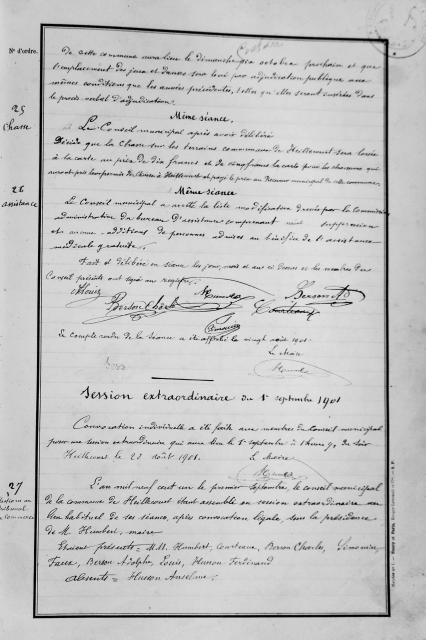 N° d'ordre.
De cette commune aura lieu le dimanche six octobre prochain et que
l'emplacement des jeux et danses sera loué par adjudication publique aux
mêmes conditions que les années précédentes, telles qu'elles seront insérées dans
le procès-verbal d'adjudication.
Même séance.
25
Chasse
Le Conseil municipal après avoir délibéré
Décide que la Chasse sur les terrains communaux de Heillecourt sera louée
à la carte au prix de dix francs et de cinq francs la carte pour les chasseurs qui
auront pris leur permis de chasse à Heillecourt et payé le prix au Receveur municipal de cette commune
Même séance
26
assistance
Le Conseil municipal a arrêté la liste modificative dressée par la Commission
administrative du bureau d'assistance comprenant suppression
et additions de personnes admises au bénéfice de l'assistance
médicale gratuite.
Fait et délibéré en séance les jour, mois et an ci dessus et les membres du
Conseil présents ont signé au registre.
Louis
Humbert
Berson Ad
Berson Charles
Courteaux
Simonin
Le compte rendu de la séance a été affiché le vingt août 1901
Le Maire
Humbert
Session extraordinaire du 1er septembre 1901
Convocation individuelle a été faite aux membres du Conseil municipal
pour une session extraordinaire qui aura lieu le 1er septembre à 1 heure du soir
Heillecourt le 28 août 1901.
Le Maire
Humbert
27
L'an mil neuf cent un le premier septembre, le conseil municipal
de la commune de Heillecourt s'est assemblé en session extraordinaire au
lieu habituel de ses séances, après convocation légale sous la présidence
de M. Humbert, maire
Etaient présents = M.M. Humbert, Courteaux, Berson Charles, Simonin,
Berson Adolphe, Louis, Husson Ferdinand
Absents = Husson Anselme.